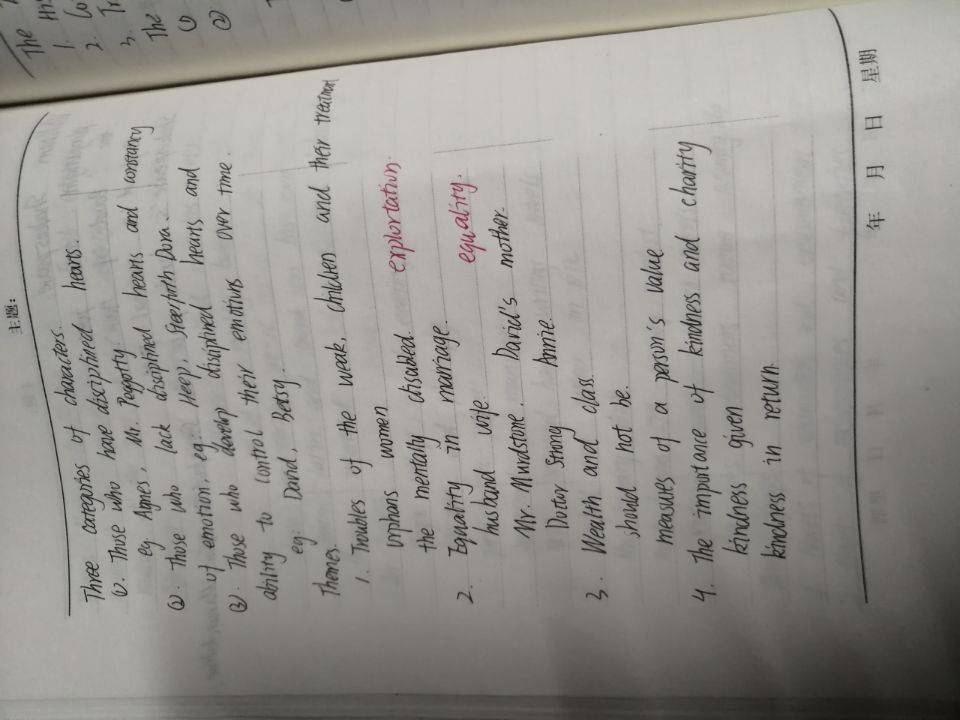 主题:
Three categories of characters.
①. Those who have disciplined hearts.
eg Agnes, Mr. Peggotty
②. Those who lack disciplined hearts and constancy
of emotion, eg: Heep, Steerforth Dora.
③. Those who develop disciplined hearts and
ability to control their emotions over time.
eg: David, Betsy.
Themes.
1. Troubles of the weak, children and their treatment
orphans women explortation.
the mentally disabled.
2. Equality in marriage. equality.
husband wife.
Mr. Murdstone. David's mother.
Doctor Strong Annie.
3. Wealth and class.
should not be.
measures of a person's value
4. The importance of kindness and charity
kindness given
kindness in return.
年 月 日 星期
The
1.
2.
3.
The
①
②